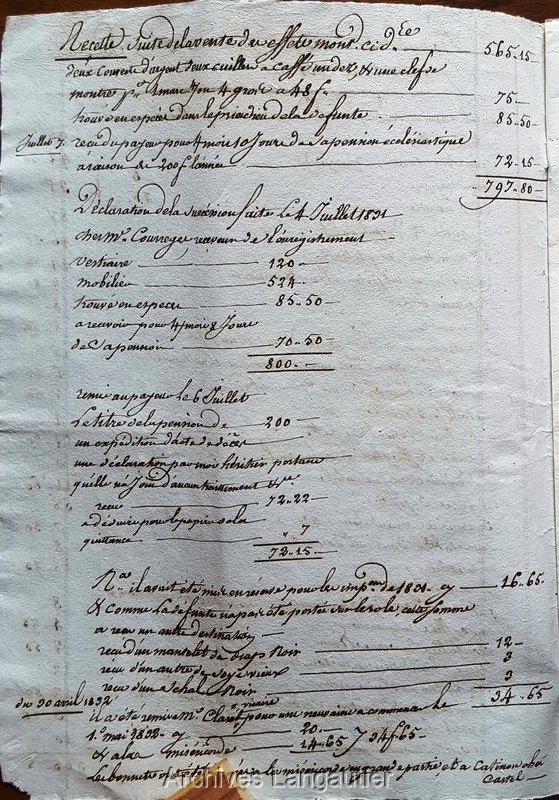 Recette Suite de la vente des effets mont. ci d.re 565..15
deux couverts d'argent deux cuilliers a caffé un dez, & une clef de
montre 48 f 75..
trouvé en especes dans le prie dieu de la defunte 85..50
Juillet 7. recu du payeur pour 4 mois 10 Jours de Sa pension écclésiastique
a raison de 200 f l'année 72..15
797..80
Déclaration de la Succession faite le 4 Juillet 1831
chez Mr. Courreges receveur de l'enregistrement
Vestiaire 120
mobilier 524
trouvé en especes 85..50
a recevoir pour 4 mois 8 Jours
de Sa pension 70..50
800..
remis au payeur le 6 Juillet
Le titre de la pension de 200
un expédition d'acte de décès
une déclaration par moi héritier portant
qu'elle ne Joui d'aucun traittement &c
recu 72..22
a déduire pour le papier de la
quittance 7
72..15
Na. il avait été mis en reserve pour les imp.ons de 1831 cy 16..65
& comme la defunte n'a pas été portée sur le role cette Somme
a recu un autre destination
recu d'un mantelet de drap Noir 12
recu d'un autre de Soye vieux 3
recu d'un Schal Noir 3
34..65
du 30 avril 1832 il a été remis a Mr. Claret vicaire pour une neuvaine a commencer le
1.er mai 1832 cy 20..
& a la miséricorde 14..65 34 f 65
Les bonnets a la miséricorde en grande partie, et a Catinou chez
Castel
Archives Langautier